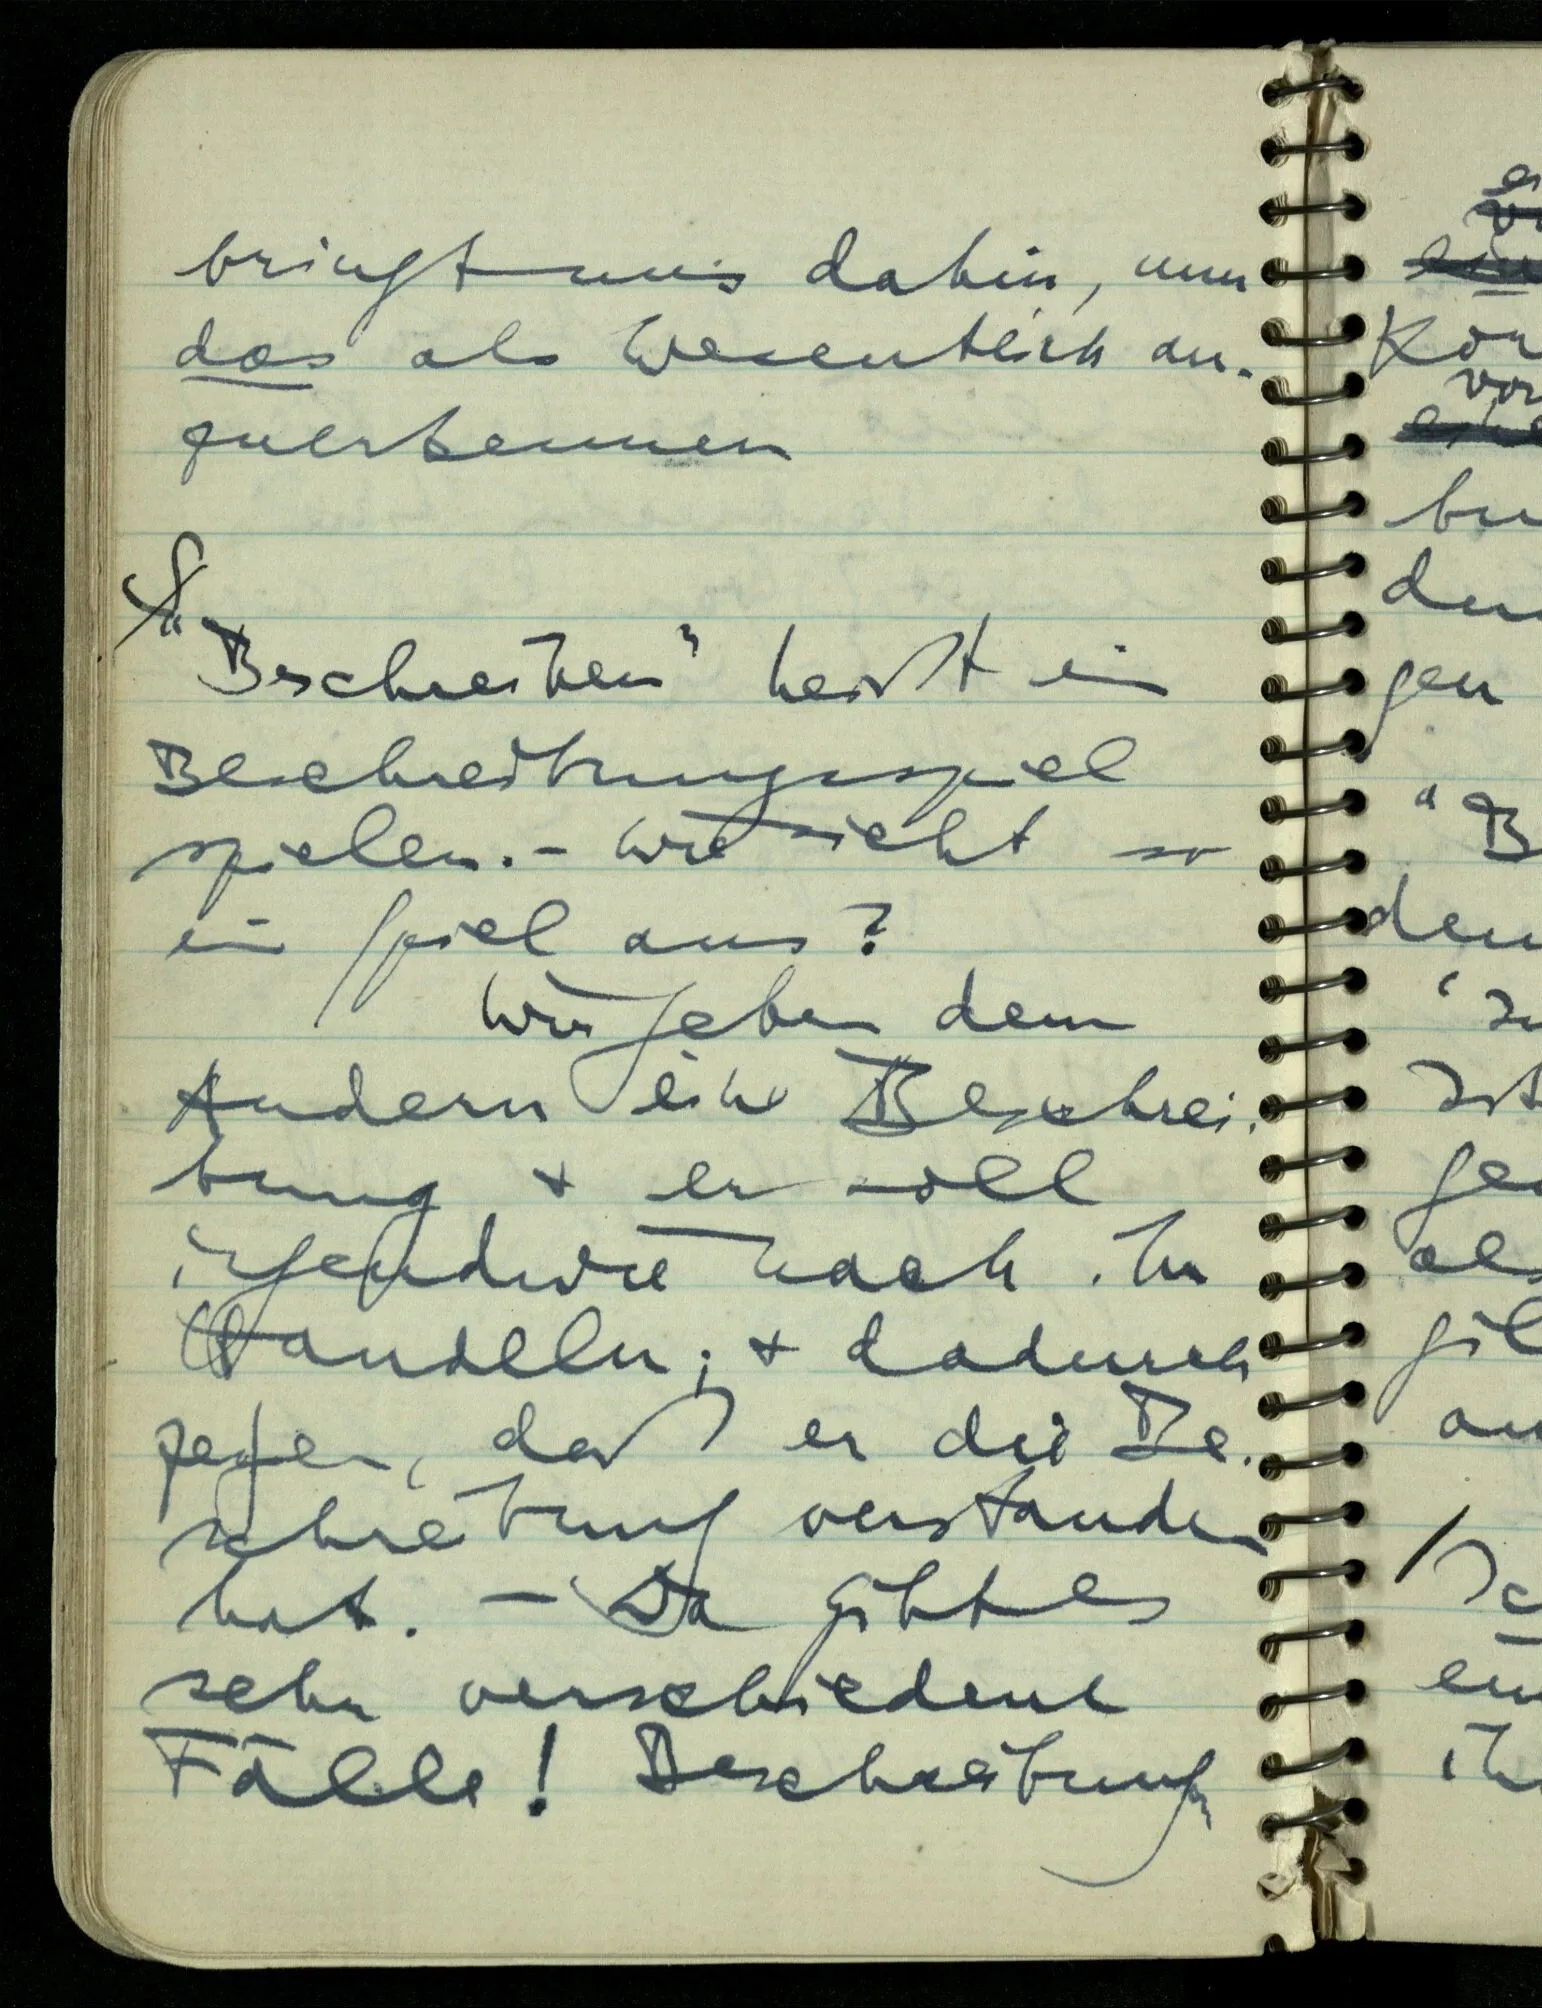 bringt uns dahin, nun
das als Wesentlich an-
zuerkennen
"Beschreiben" heißt ein
Beschreibungsspiel
spielen. – Wie sieht so
ein Spiel aus?
Wir geben dem
Andern eine Beschrei-
bung + er soll
irgendwie nach ihr
handeln; + dadurch
zeigen, daß er die Be-
schreibung verstanden
hat. – Da gibt es
sehr verschiedene
Fälle! Beschreibung
ein
Kör
vor
bu
gen
"B
den
ges
als
gil
au
ein